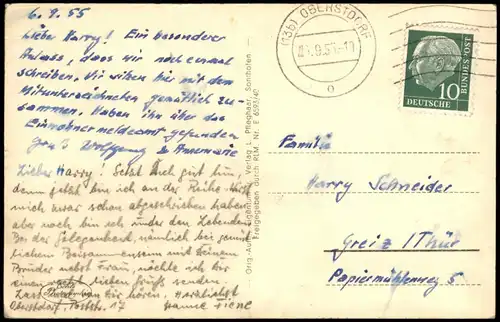 6.9.55
Liebe Harry! Ein besonderer
Anlass, dass wir noch einmal
schreiben. Wir sitzen hier mit dem
Mitunterzeichneten gemütlich zu-
sammen. Haben ihn über das
Einwohnermeldeamt gefunden
Wolfgang & Annemarie
Lieber Harry! Setz Dich gut hin,
denn jetzt bin ich an der Reihe. Hast
mich zwar schon abgeschrieben haben,
aber noch bin ich unter den Lebenden.
Bei der Gelegenheit, nämlich bei gemüt-
lichem Beisammensein mit Deinem
Bruder nebst Frau, möchte ich Dir
einen recht lieben Gruß senden.
Lass von Dir hören. Herzlichst
Oberstdorf, Poststr. 17
Echte Photographie
Orig. Aufn. Verlag L. Pfleghaar, Sonthofen
Freigegeben durch RLM. Nr. E 6593/40
(13b) OBERSTDORF
DEUTSCHE
BUNDESPOST
10
Familie
Harry Schneider
Greiz / Thür
Papiermühlenweg 5